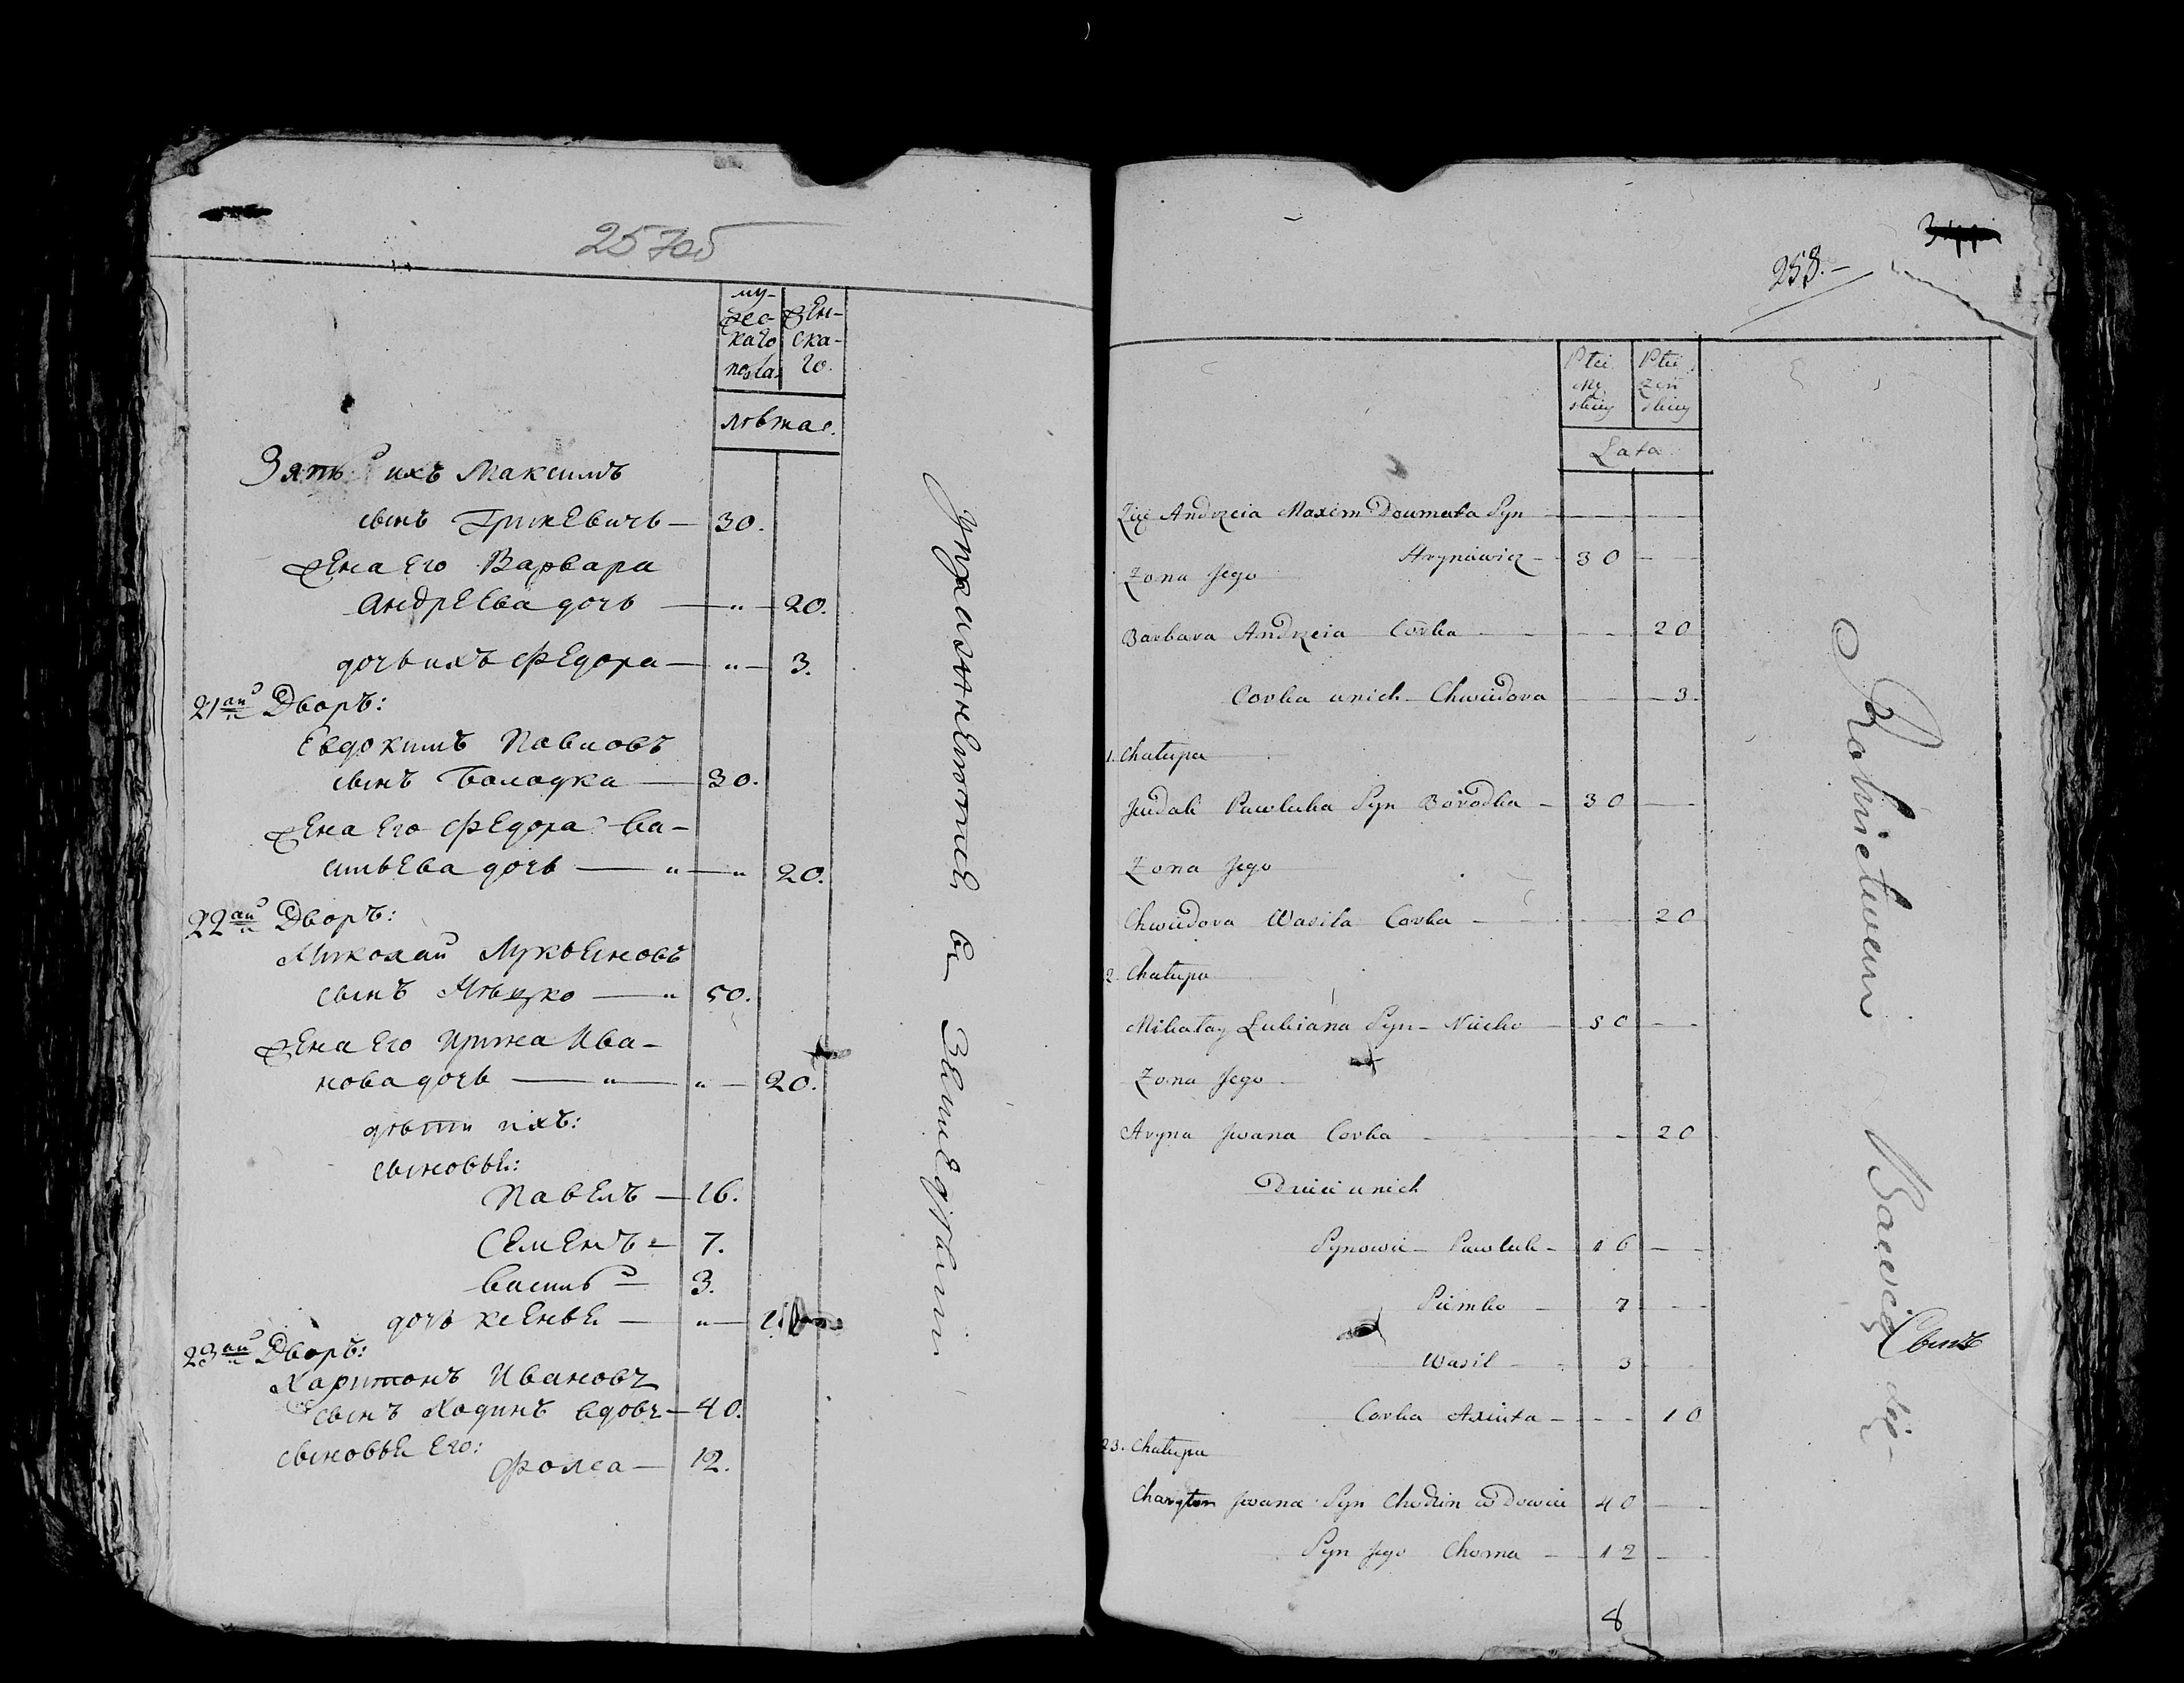 257 об
му-
жес-
каго
пола.
жен-
ска-
го.
лѣта.
Зять ихъ Максимъ
сынъ Гриневичъ — 30.
жена его Варвара
Андреева дочь — " — 20.
дочь ихъ Федора — " — 3.
21ай Дворъ:
Евдокимъ Павловъ
сынъ Бородка — 30.
жена его Федора Ва-
сильева дочь — " — " 20.
22ай Дворъ:
Николай Лукьяновъ
сынъ — " 50.
жена его Ирина Ива-
нова дочь — " — " — 20.
дѣти ихъ:
сыновья:
Павелъ — 16.
Семенъ — 7.
Василь — 3.
дочь —
23ай Дворъ:
Харитонъ Ивановъ
сынъ Ходинъ вдовъ — 40.
сыновья его:
Фома — 12.
Упражненіе въ Земледѣліи.
258.-
Płci
Mę
skiey
Płci
żeń
skiey
Lata
Zięć Andrzeia Maxim Syn
Hryniewicz — 30 —
Zona Jego
Barbara Andrzeia Corka — — 20
Corka u nich Chwiedora — — 3.
1. Chałupa
Pawluka Syn Borodka — 30 —
Zona Jego
Chwiedora Wasila Corka — — 20
2. Chałupa
Mikołay Lukiana Syn — 50 —
Zona Jego
Aryna Jwana Corka — — 20
Dzieci u nich
Synowie — Pawluk — 16 —
Siemko — 7 —
Wasil — 3
Corka Axiuta — — 10
23. Chałupa
Charyton Jwana Syn Chodzin wDowiec 40 —
Syn Jego Choma — 12 —
8
Rolnictwem Bawią się —
Свит